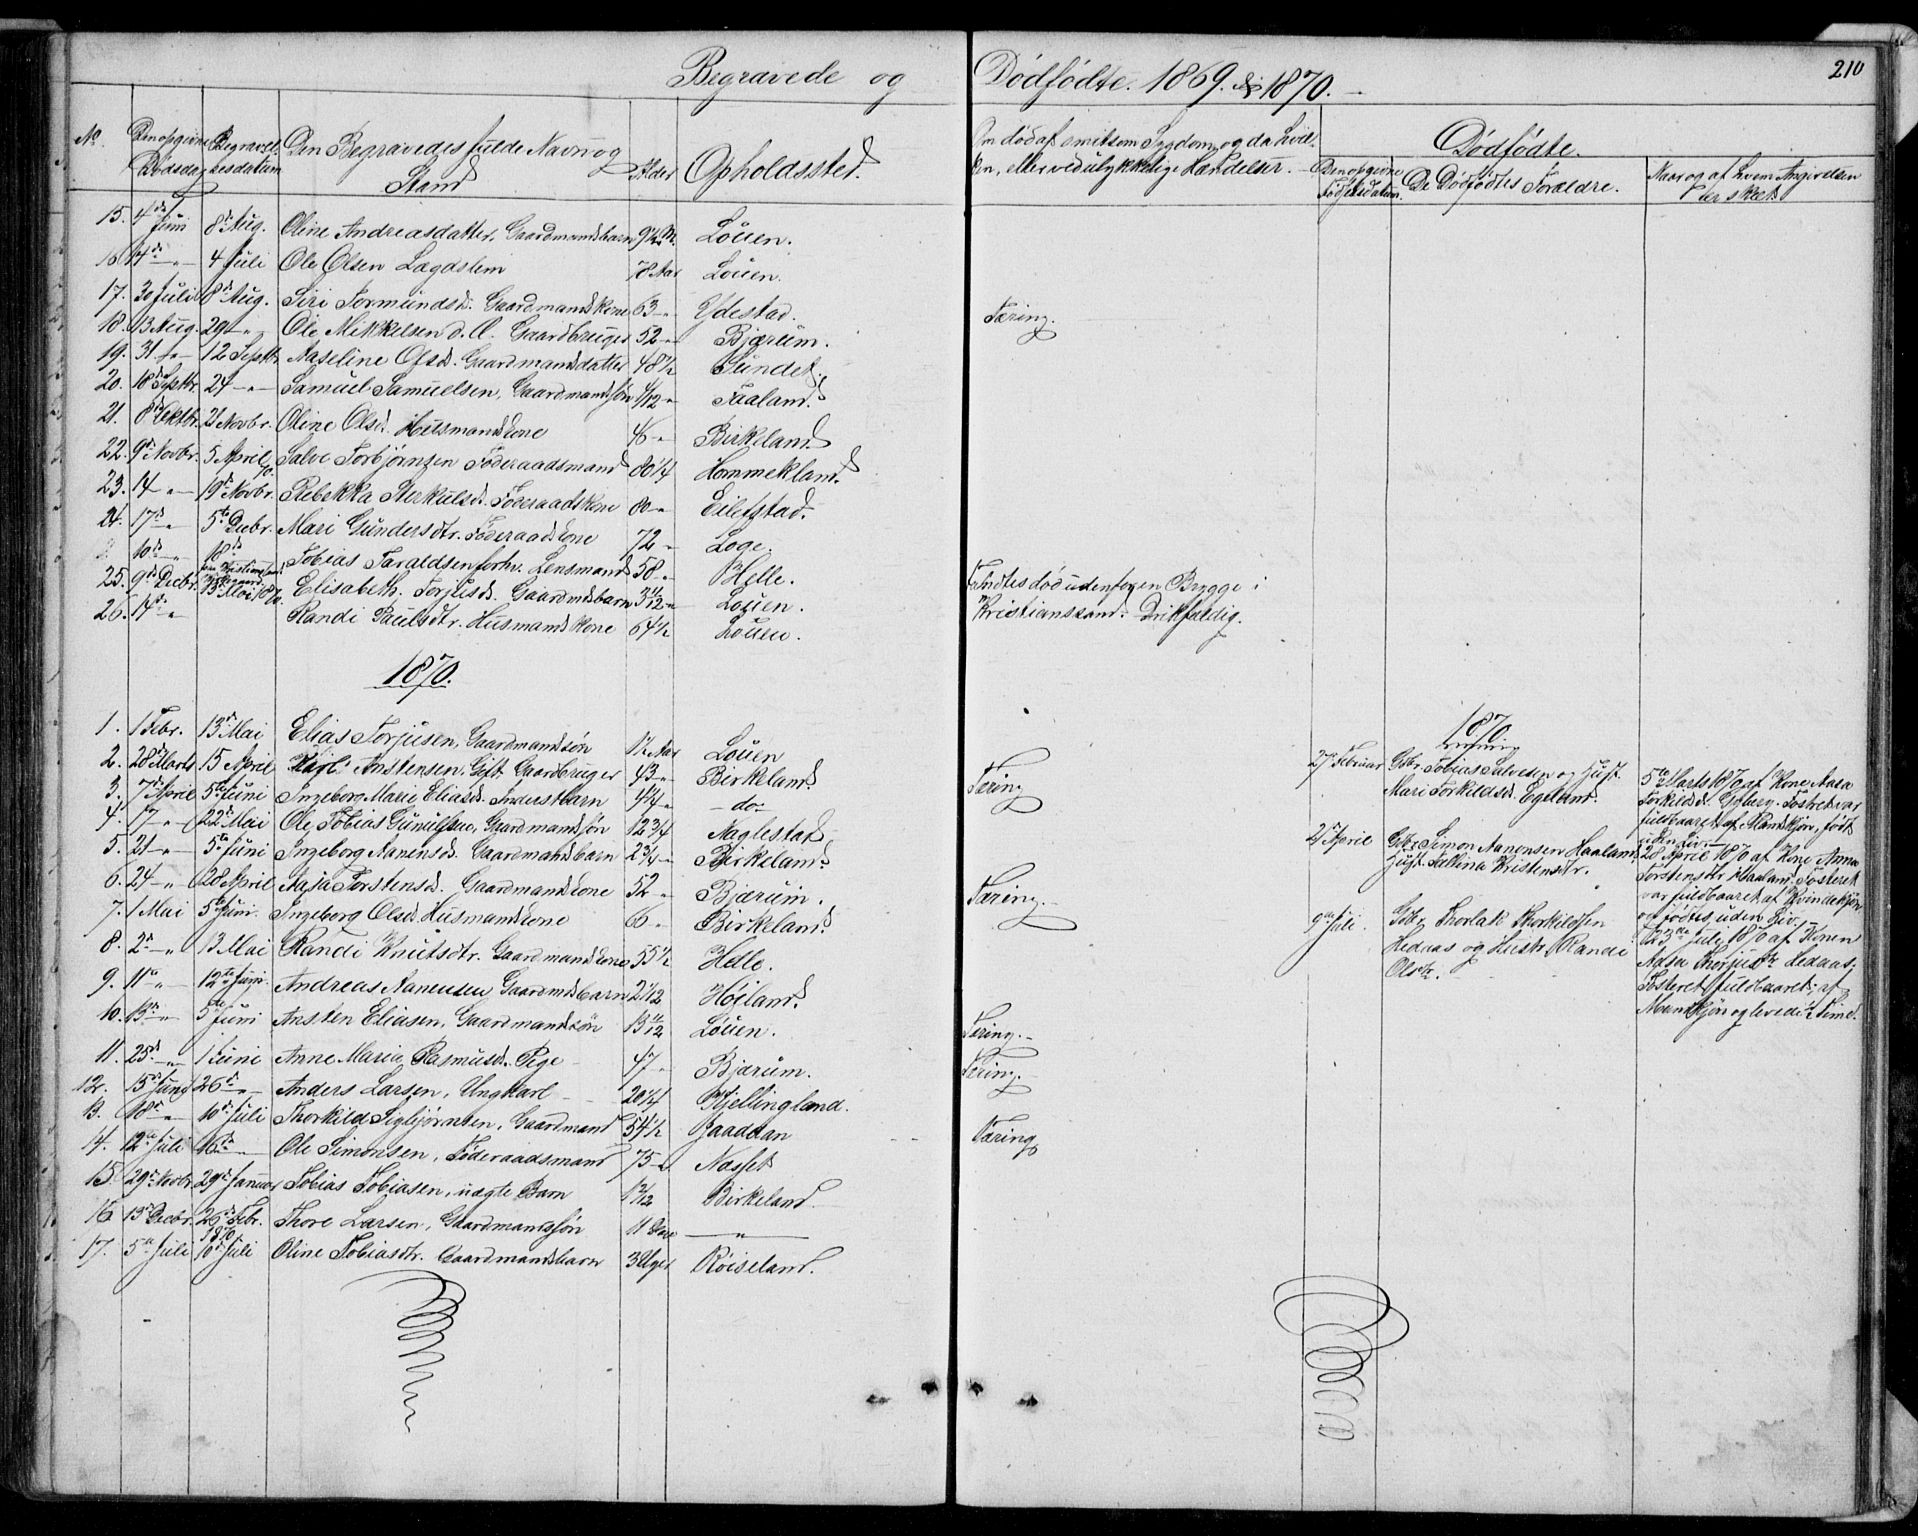 Begravede og Dødfødte. 1869. & 1870.
210
No. Den opgivne Dødsdag Begravelsesdatum Den Begravedes fulde Navn og Stand Alder Opholdssted.
Om død af smitsom Sygdom, og da hvilken, eller ved ulykkelige Hændelser.
Dødfødte.
Den opgivne Fødselsdatum. De Dødfødtes Forældre. Naar og af hvem Angivelsen er skeet
15. 4de Juni 8de Aug. Oline Andreasdatter, Gaardmandsbarn 9½ M. Løuen.
16. 14de " 4 Juli Ole Olsen Lægdslem 78 Aar Løuen.
17. 30 Juli 8de Aug. Siri Tormundsd. Gaardmandskone 63 " Ydestad. Tæring.
18. 13 Aug. 29 " Ole Mekkelsen d. Æ. Gaardbruger 52 " Bjærum.
19. 31 " 12 Septbr. Aaseline Olsd. Gaardmandsdatter 48½ Sundet.
20. 18de Septbr. 24 " Samuel Samuelsen, Gaardmandssøn /12 " Faaland.
21. 8de Oktbr. 21 Novbr. Oline Olsd. Husmandskone 46 " Birkeland
22. 9de Novbr. 5 April 70. Salve Torbjørnsen Føderaadsmand 80¼ Hommekland.
23. 14 " 19de Novbr. Rebekka Sterkulsd. Føderaadskone 80 " Eilefstad.
24. 17de " 5te Decbr. Mari Gundersdtr. Føderaadskone 72 " Loge.
10de " 18de Tobias Taraldsen forhv. Lensmand 58 " Helle. Fandtes død udenfor en Brygge i Kristianssand. Drikfældig.
25. 9de Decbr. 13 Mai 1870. Elisabeth Torjusd. Gaardmdsbarn 3 11/12 " Løuen.
26. 14de " Randi Paulsdtr. Husmandskone 64½ Løuen.
1870.
1. 1 Febr. 13de Mai Elias Torjusen, Gaardmandssøn 12 Aar Løuen
2. 28de Marts 15 April Anstensen, Gift, Gaardbruger 43 " Birkeland. Tæring
3. 7de April 5te Juni Ingeborg Marie Eliasd. Inderstbarn 4¼ " do
4. 17 " 22de Mai Ole Tobias Gunulfsen, Gaardmandssøn 12¾ Naglestad
5. 21 " 5te Juni Ingeborg Aanensd. Gaardmandsbarn 2¾ " Birkeland.
6. 24 " 28 April Aasa Torstensd. Gaardmandskone 52 " Bjærum. Tæring.
7. 1 Mai 5te Juni. Ingeborg Olsd. Husmandskone 66 " Birkeland
8. 2de " 13 Mai Randi Knutsdtr. Gaardmandskone 55½ Helle.
9. 11te " 12te Juni. Andreas Aanensen, Gaardmdsbarn 2 1/12 Højland.
10. 13de " 5te Juni Ansten Eliasen, Gaardmandssøn 13 11/12 Løuen. Tæring.
11. 25de " 1 Juni Anne Maria Rasmusd. Pige 47 " Bjærum. Tæring.
12. 15de Juni 26de " Anders Larsen, Ungkarl 20¼ Kjellingland.
13. 18de " 10de Juli Thorkild Sigbjørnsen, Gaardmand 54½ Jaaddan Tæring
14. 12te Juli 16de " Ole Simonsen, Føderaadsmand 75 " Nasset
15. 29de Novbr. 29de Januar Tobias Tobiasen, uægte Barn /12 Birkeland
16 13de Decbr. 26de Febr. 1870 Thore Larsen, Gaardmandssøn 11 Dage "
17. 5te Juli 10de Juli Oline Tobiasdtr. Gaardmandsbarn 3 Uger Røiseland.
1870
27de Februar Gbr. Tobias Salvesen og Hust. Mari Torkildsd. Egeland. 5te Marts 1870 af Kone Aasa Torkildsd. Fosteret var fuldbaaret af Mandskjøn, født uden Liv.
2de April Gbr. Simon Aanonsen Haaland, Hust. Tallina Kristensdtr. 28 April 1870 af Kone Anna Torstensdtr. Haaland. Fosteret var fuldbaaret af Kvindekjøn og fødtes uden Liv.
9de Juli. Gbr. Thorlak Thorkildsen Hedaas og Hustr. Randi Olsdtr. 23de Juli 1870 af Konen Aasa Thorjusdtr. Hedaas. Fosteret fuldbaaret, af Mandkjøn og levede ½ Time.